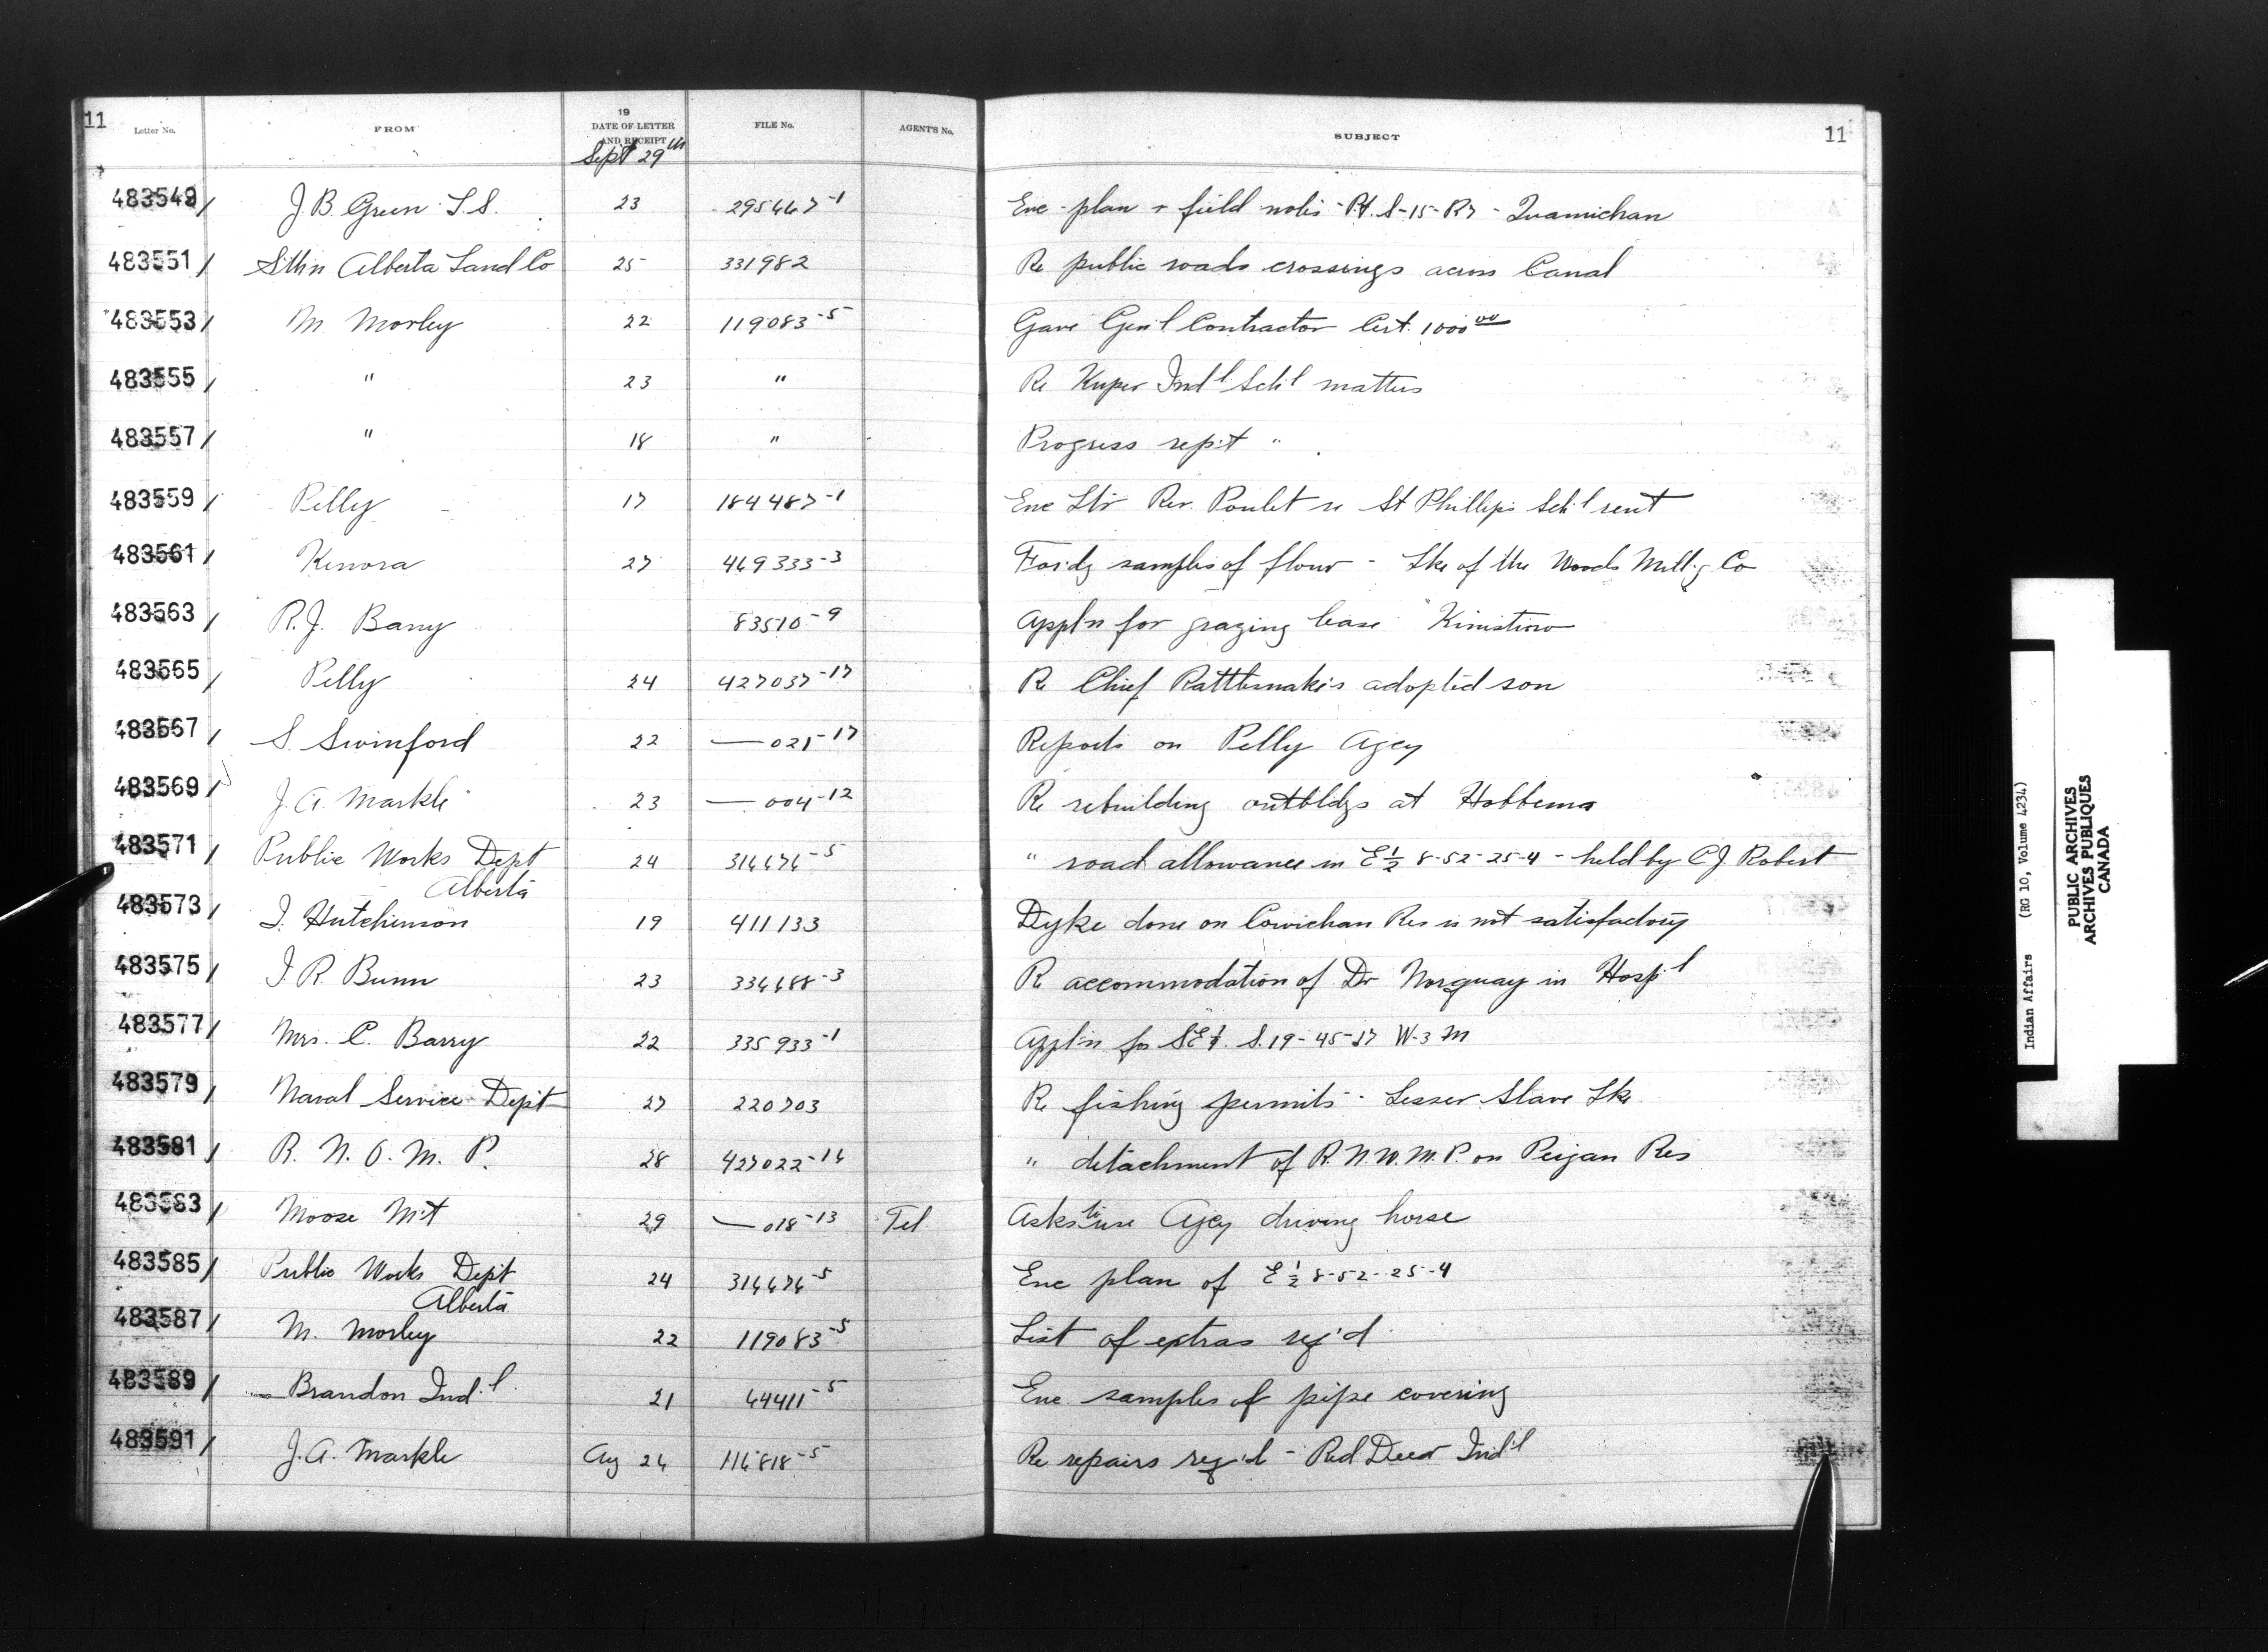 11 Letter No. FROM 19 DATE OF LETTER AND RECEIPT FILE No. AGENT'S No. SUBJECT 11
Sept 29th
483549/ J. B. Green L.S. 23 295467-1 Enc plan + field notes - Pt. S-15-R7 - Quamichan
483551/ Sthn Alberta Land Co 25 331982 Re public roads crossings across Canal
483553/ M. Morley 22 119083-5 Gave Gen'l Contractor Cert. 1000 00
483555/ " 23 " Re Kuper Ind'l Sch'l matters
483557/ " 18 " Progress rep't "
483559/ Pelly 17 184487-1 Enc Ltr Rev. Poulet re St Phillips Sch'l rent
483561/ Kenora 27 469333-3 For'dg samples of flour - Lke of the Woods Mill'g Co
483563/ R. J. Barry 83510-9 Appl'n for grazing lease Kinistino
483565/ Pelly 24 427037-17 Re Chief Rattlesnake's adopted son
483567/ S. Swinford 22 — 021-17 Reports on Pelly Agcy
483569/ J. A. Markle 23 — 004-12 Re rebuilding outbldgs at Hobbema
483571/ Public Works Dept 24 316676-5 " road allowance in E 1/2 8-52-25-4 - held by C J. Robert
Alberta
483573/ I. Hutchinson 19 411133 Dyke done on Cowichan Res is not satisfactory
483575/ J. R. Bunn 23 336688-3 R accommodation of Dr Norquay in Hosp'l
483577/ Mrs. C. Barry 22 335933-1 Appl'n for SE 1/4. S. 19-45-17 W-3 M
483579/ Naval Service Dep't 27 220703 Re fishing permits - Lesser Slave Lke
483581/ R. N. O. M. P. 28 427022-16 " detachment of R. N. W. M. P. on Peigan Res
483583/ Moose M't 29 — 018-13 Tel Asks to use Agcy driving horse
483585/ Public Works Dep't 24 316676-5 Enc plan of E 1/2 8-52-25-4
Alberta
483587/ M. Morley 22 119083-5 List of extras req'd
483589/ Brandon Ind'l 21 64411-5 Enc. samples of pipe covering
483591/ J. A. Markle Aug 26 116818-5 Re repairs req'd - Red Deer Ind'l
Indian Affairs (RG 10, Volume 4234)
PUBLIC ARCHIVES
ARCHIVES PUBLIQUES
CANADA